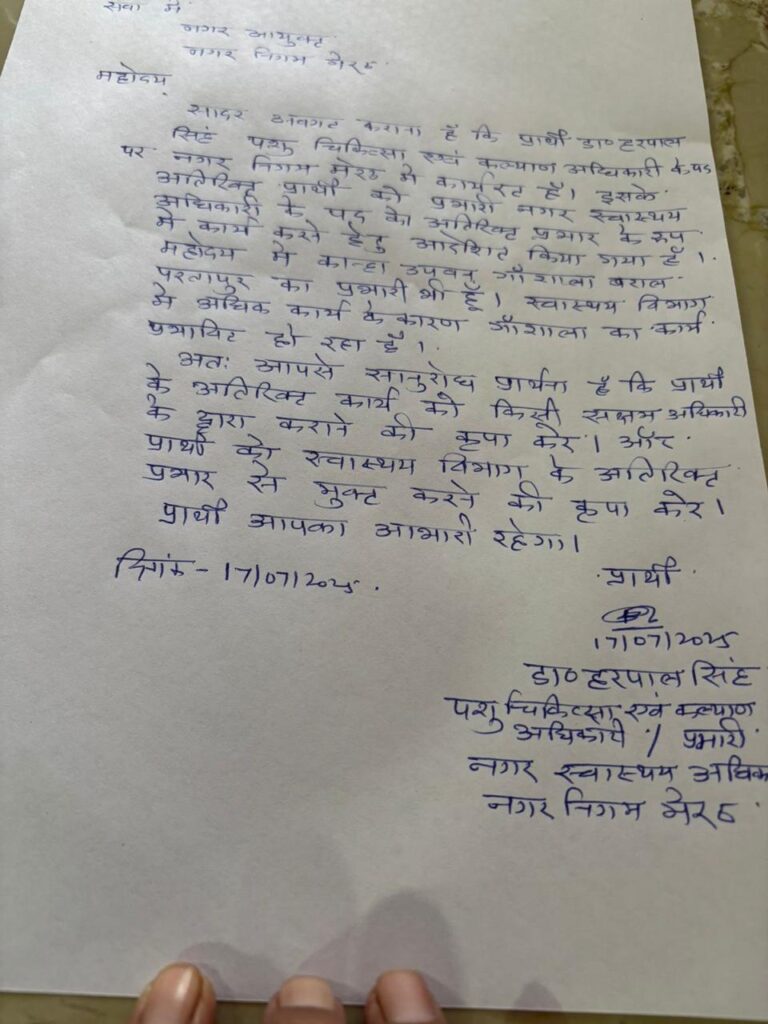 सेवा में
नगर आयुक्त
नगर निगम मेरठ
महोदय,
सादर अवगत कराना है कि प्रार्थी डा० हरपाल
सिंह पशु चिकित्सा एवं कल्याण अधिकारी के पद
पर नगर निगम मेरठ में कार्यरत है। इसके
अतिरिक्त प्रार्थी को प्रभारी नगर स्वास्थय
अधिकारी के पद का अतिरिक्त प्रभार के रूप
में कार्य करने हेतु आदेशित किया गया है।
महोदय में कान्हा उपवन गौशाला बराल
परतापुर का प्रभारी भी हूँ। स्वास्थय विभाग
में अधिक कार्य के कारण गौशाला का कार्य
प्रभावित हो रहा है।
अतः आपसे सानुरोध प्रार्थना है कि प्रार्थी
के अतिरिक्त कार्य को किसी सक्षम अधिकारी
के द्वारा कराने की कृपा करें। और
प्रार्थी को स्वास्थय विभाग के अतिरिक्त
प्रभार से मुक्त करने की कृपा करें।
प्रार्थी आपका आभारी रहेगा।
दिनांक - 17/07/2025.
प्रार्थी
17/07/2025
डा० हरपाल सिंह
पशु चिकित्सा एवं कल्याण
अधिकारी / प्रभारी
नगर स्वास्थय अधिका
नगर निगम मेरठ